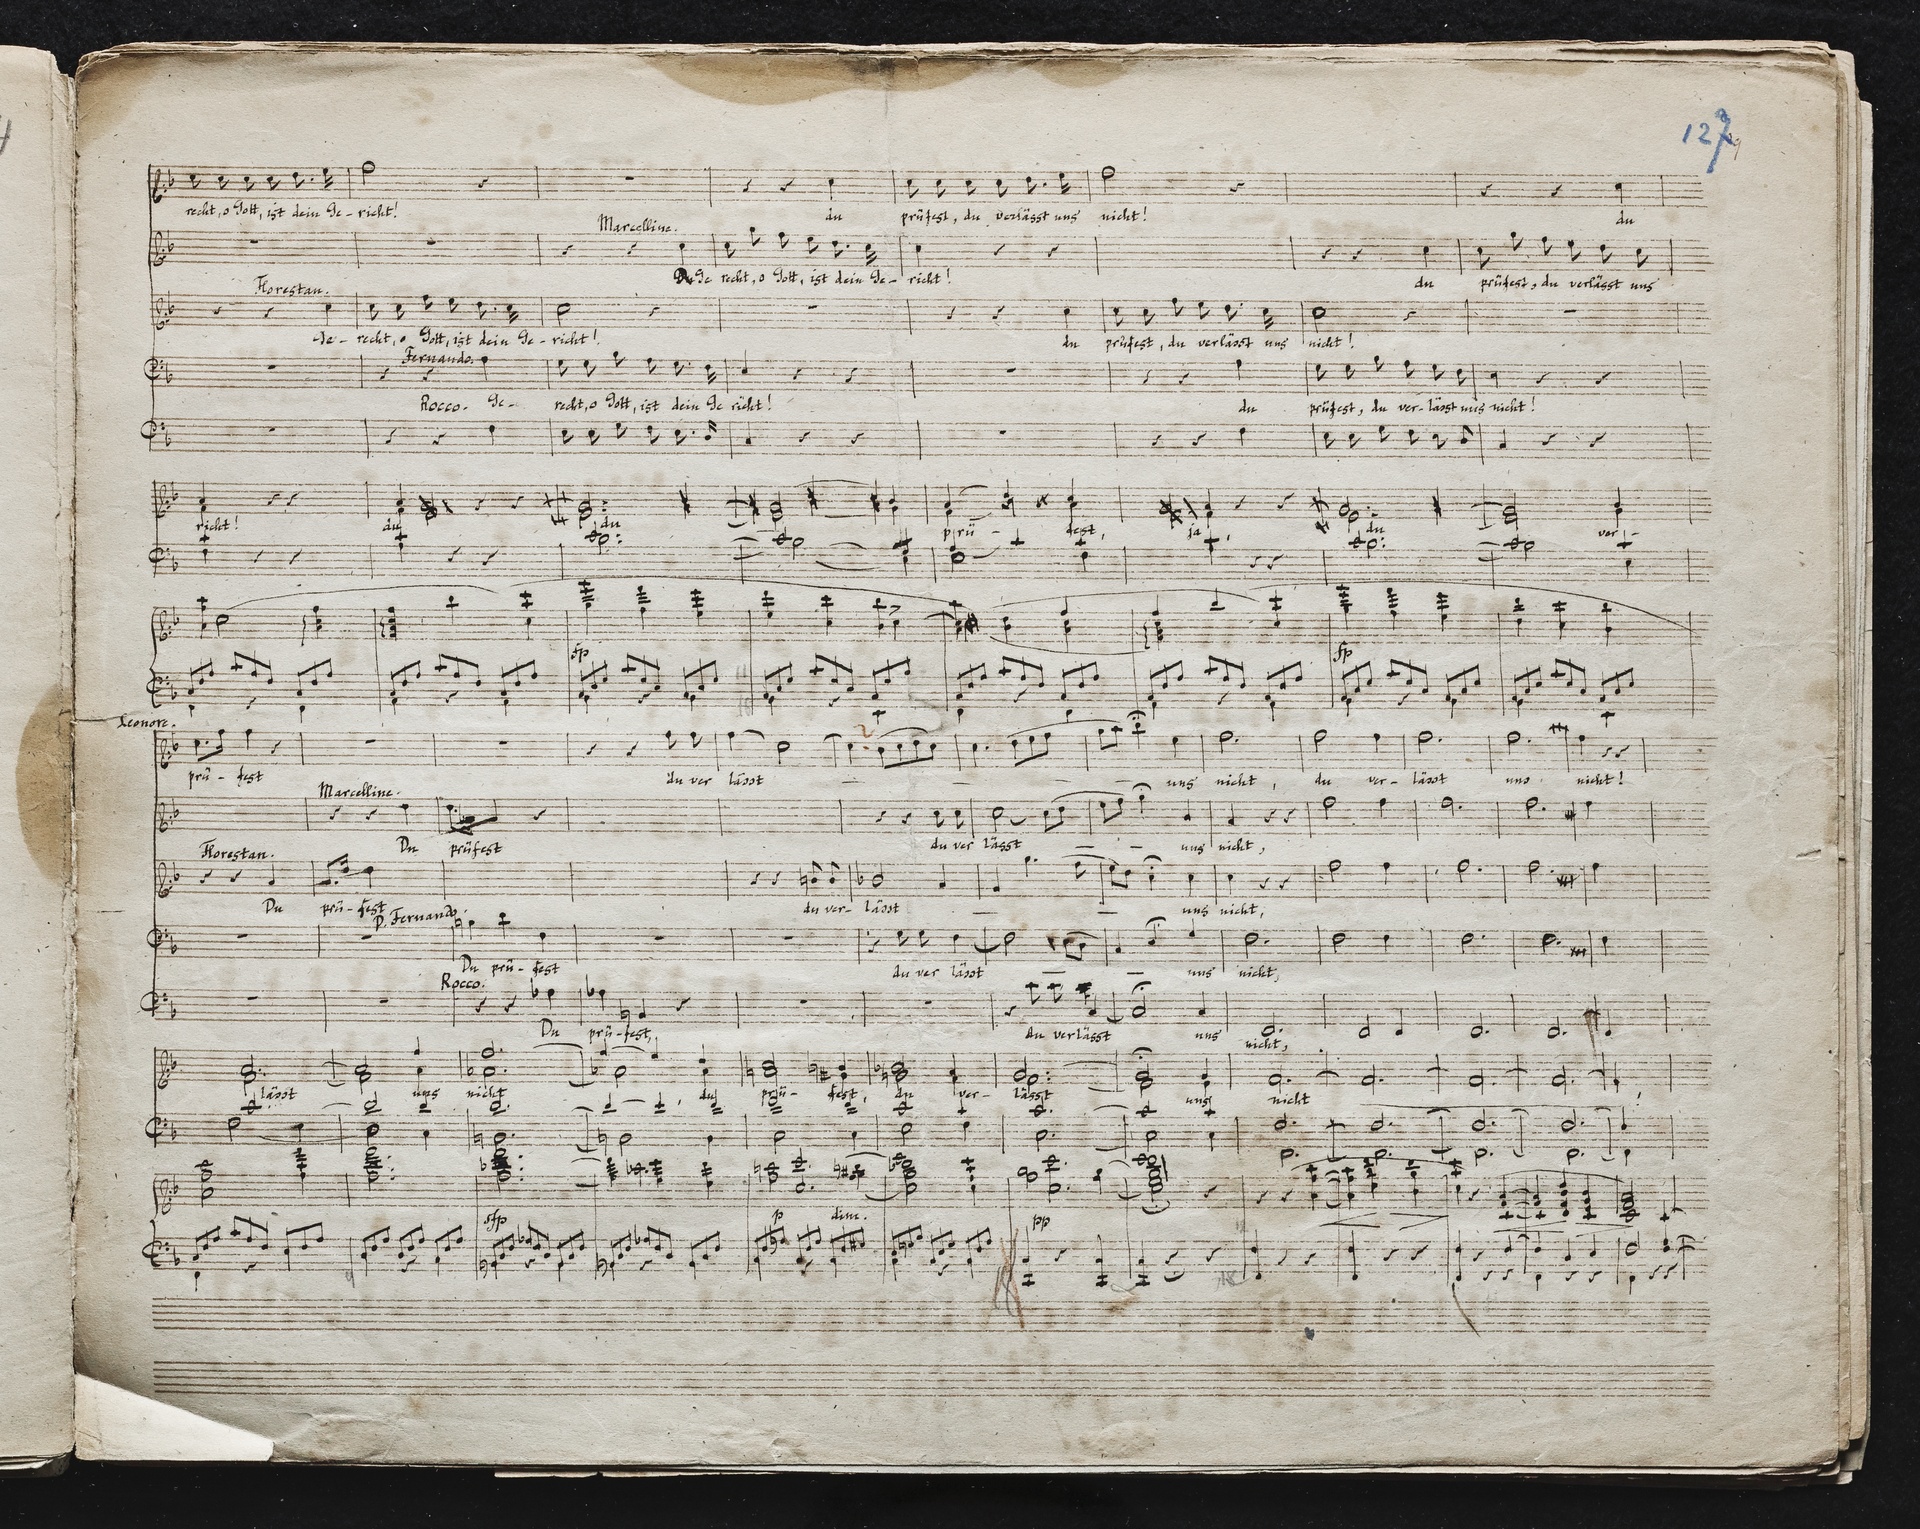 127
recht, o Gott, ist dein Ge- richt! du prüfest, du verlässt uns nicht! du
Marcelline.
Ge recht, o Gott, ist dein Ge- richt! du prüfest, du verlässt uns
Florestan.
Ge- recht, o Gott, ist dein Ge- richt! du prüfest, du verlässt uns nicht!
Fernando.
Rocco. Ge- recht, o Gott, ist dein Ge richt! du prüfest, du ver- lässt uns nicht!
richt! du du prü - fest, ja, du ver-
sfp sfp
Leonore.
prü - fest du ver lässt uns nicht, du ver- lässt uns nicht!
Marcelline.
Du prüfest du ver lässt uns nicht,
Florestan.
Du prü- fest du ver- lässt uns nicht,
D. Fernando.
Du prü- fest du ver lässt uns nicht,
Rocco.
Du prü-fest, du verlässt uns nicht,
lässt uns nicht, du prü- fest, du ver- lässt uns nicht!
sfp p dim. pp